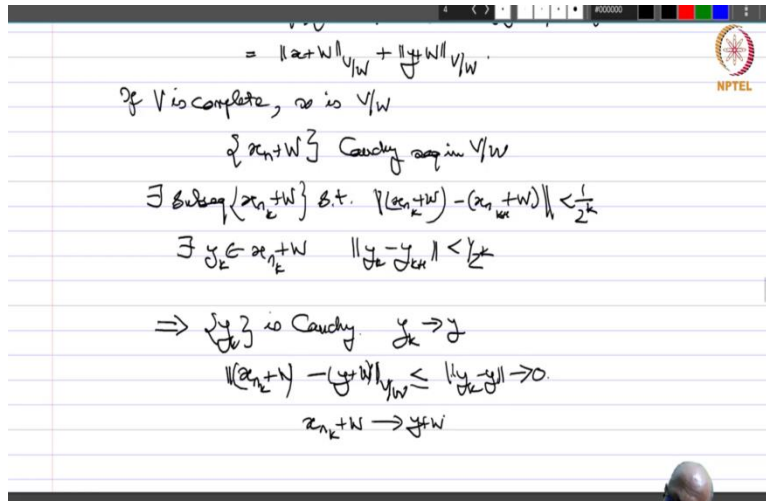 4
#000000
NPTEL
= ||x+W||_{V/W} + ||y+W||_{V/W}.
If V is complete, so is V/W
{x_n+W} Cauchy seq in V/W
∃ subseq {x_{n_k}+W} s.t. ||(x_{n_k}+W) - (x_{n_{k+1}}+W)|| < 1/2^k
∃ y_k ∈ x_{n_k}+W ||y_k - y_{k+1}|| < 1/2^k
⇒ {y_k} is Cauchy. y_k → y
||(x_{n_k}+W) - (y+W)||_{V/W} ≤ ||y_k - y|| → 0.
x_{n_k}+W → y+W